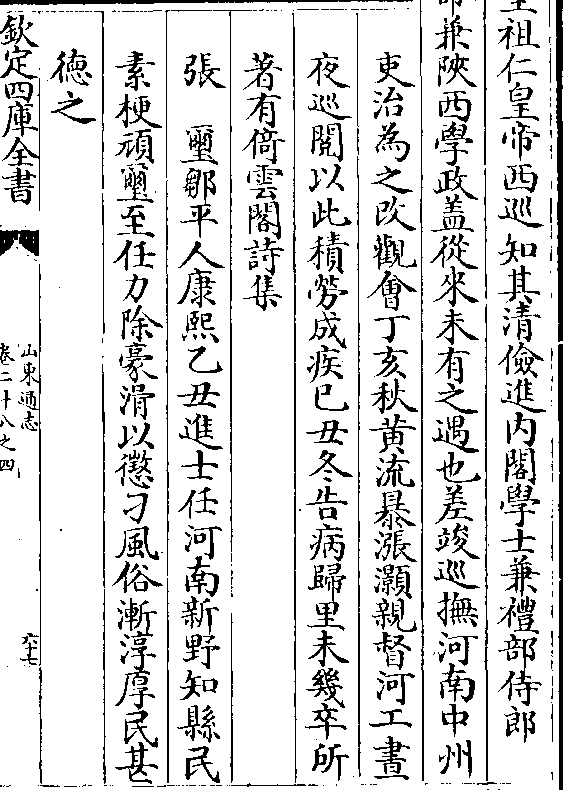 祖仁皇帝西巡知其清儉進内閣學士兼禮部侍郎
兼陝西學政盖從來未有之遇也差竣巡撫河南中州
吏治為之改觀會丁亥秋黄流暴漲灝親督河工晝
夜巡閲以此積勞成疾已丑冬告病歸里未幾卒所
著有倚雲閣詩集
張 璽鄒平人康熙乙丑進士任河南新野知縣民
素梗頑璽至任力除豪滑以懲刁風俗漸淳厚民甚
德之
欽定四庫全書
山東通志
卷二十八之四
六十七